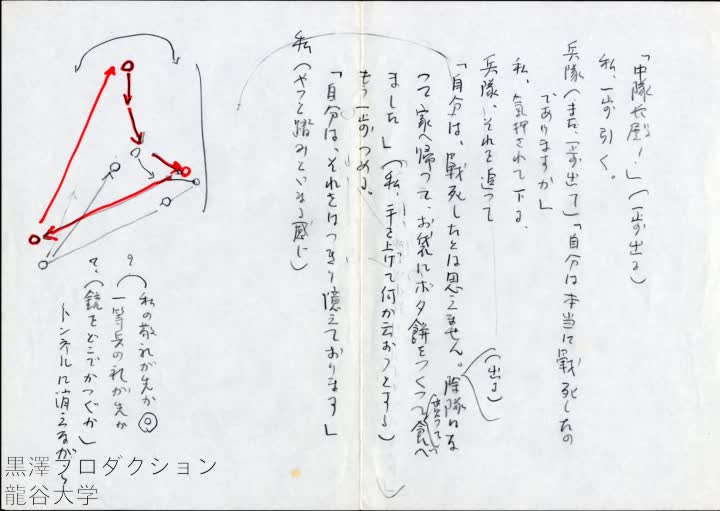 「中隊長殿！」（一歩出る）
私、一歩引く。
兵隊（また一歩出て）「自分は本当に戰死したの
でありますか」
私、気押されて下る、
兵隊、それを追って
「自分は、戰死したとは思えません。除隊にな
（出る）
って家へ帰って、お袋にボタ餅をつくって食べ
貰って
ました」（私、手を上げて何か云おうとする）
もう一歩つめる。
「自分は、それをはっきり憶えております」
私（やっと踏みとどまる感じ）
？（私の敬礼が先か
一等兵の礼が先か
？（銃をどこでかつぐか）
トンネルに消えながら
黒澤プロダクション
龍谷大学